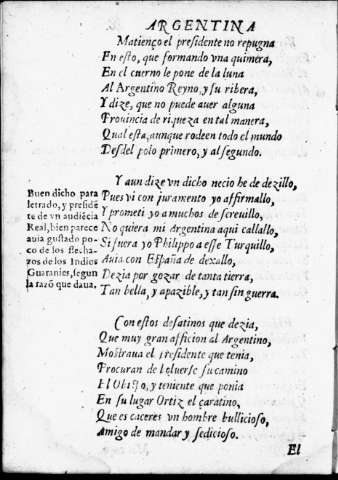 ARGENTINA
Matienço el presidente no repugna
En esto, que formando vna quimera,
En el cuerno le pone de la luna
Al Argentino Reyno, y su ribera,
Y dize, que no puede auer alguna
Prouincia de riqueza en tal manera,
Qual esta, aunque rodeen todo el mundo
Desdel polo primero, y al segundo.
Y aun dize vn dicho necio he de dezillo,
Pues vi con juramento yo affirmallo,
Y prometi yo a muchos de screuillo,
No quiera mi Argentina aqui callallo,
Si fuera yo Philippo a esse Turquillo,
Auia con España de dexallo,
Dezia por gozar de tanta tierra,
Tan bella, y apazible, y tan sin guerra.
Buen dicho para
letrado, y presidē
te de vn audiēcia
Real, bien parece
auia gustado po-
co de los flecha-
zos de los Indios
Guaranies, segun
la razō que daua.
Con estos desatinos que dezia,
Que muy gran afficion al Argentino,
Mostraua el presidente que tenia,
Procuran de boluerse su camino
El Obispo, y teniente que ponia
En su lugar Ortiz el çaratino,
Que es caceres vn hombre bullicioso,
Amigo de mandar y sedicioso.
El